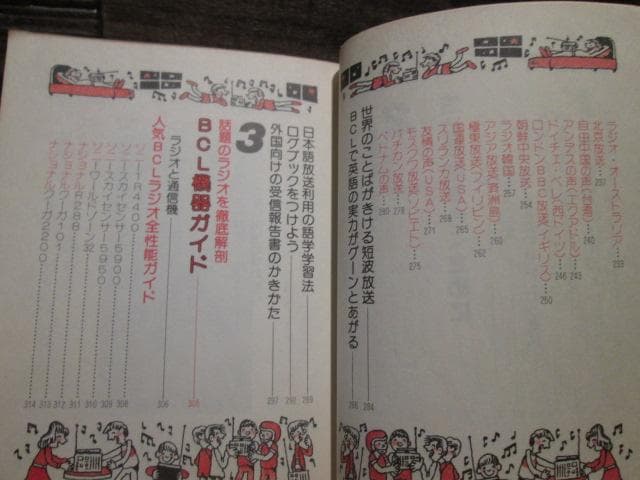 ラジオ・オーストラリア……233
北京放送……237
自由中国の声(台湾)……240
アンデスの声(エクアドル)……245
ドイチェ・ベレ(西ドイツ)……246
ロンドンBBC放送(イギリス)……250
朝鮮中央放送……254
ラジオ韓国……257
アジア放送(済州島)
極東放送(フィリピン)……262
国際放送(USA)……265
スリランカ放送……268
友情の声(USA)……271
モスクワ放送(ソビエト)……275
バチカン放送……278
ベトナムの声……280
世界のことばがきける短波放送……284
BCLで英語の実力がグーンとあがる……286
日本語放送利用の語学学習法……289
ログブックをつけよう……292
外国向けの受信報告書のかきかた……297
3
話題のラジオを徹底解剖
BCL機器ガイド……305
ラジオと通信機……306
人気BCLラジオ全性能ガイド
ソニーR4400……308
ソニースカイセンサー5900……309
ソニースカイセンサー5950……310
ソニーワールドゾーン32……311
ナショナルR288……312
ナショナルクーガ101……313
ナショナルクーガ2200……314